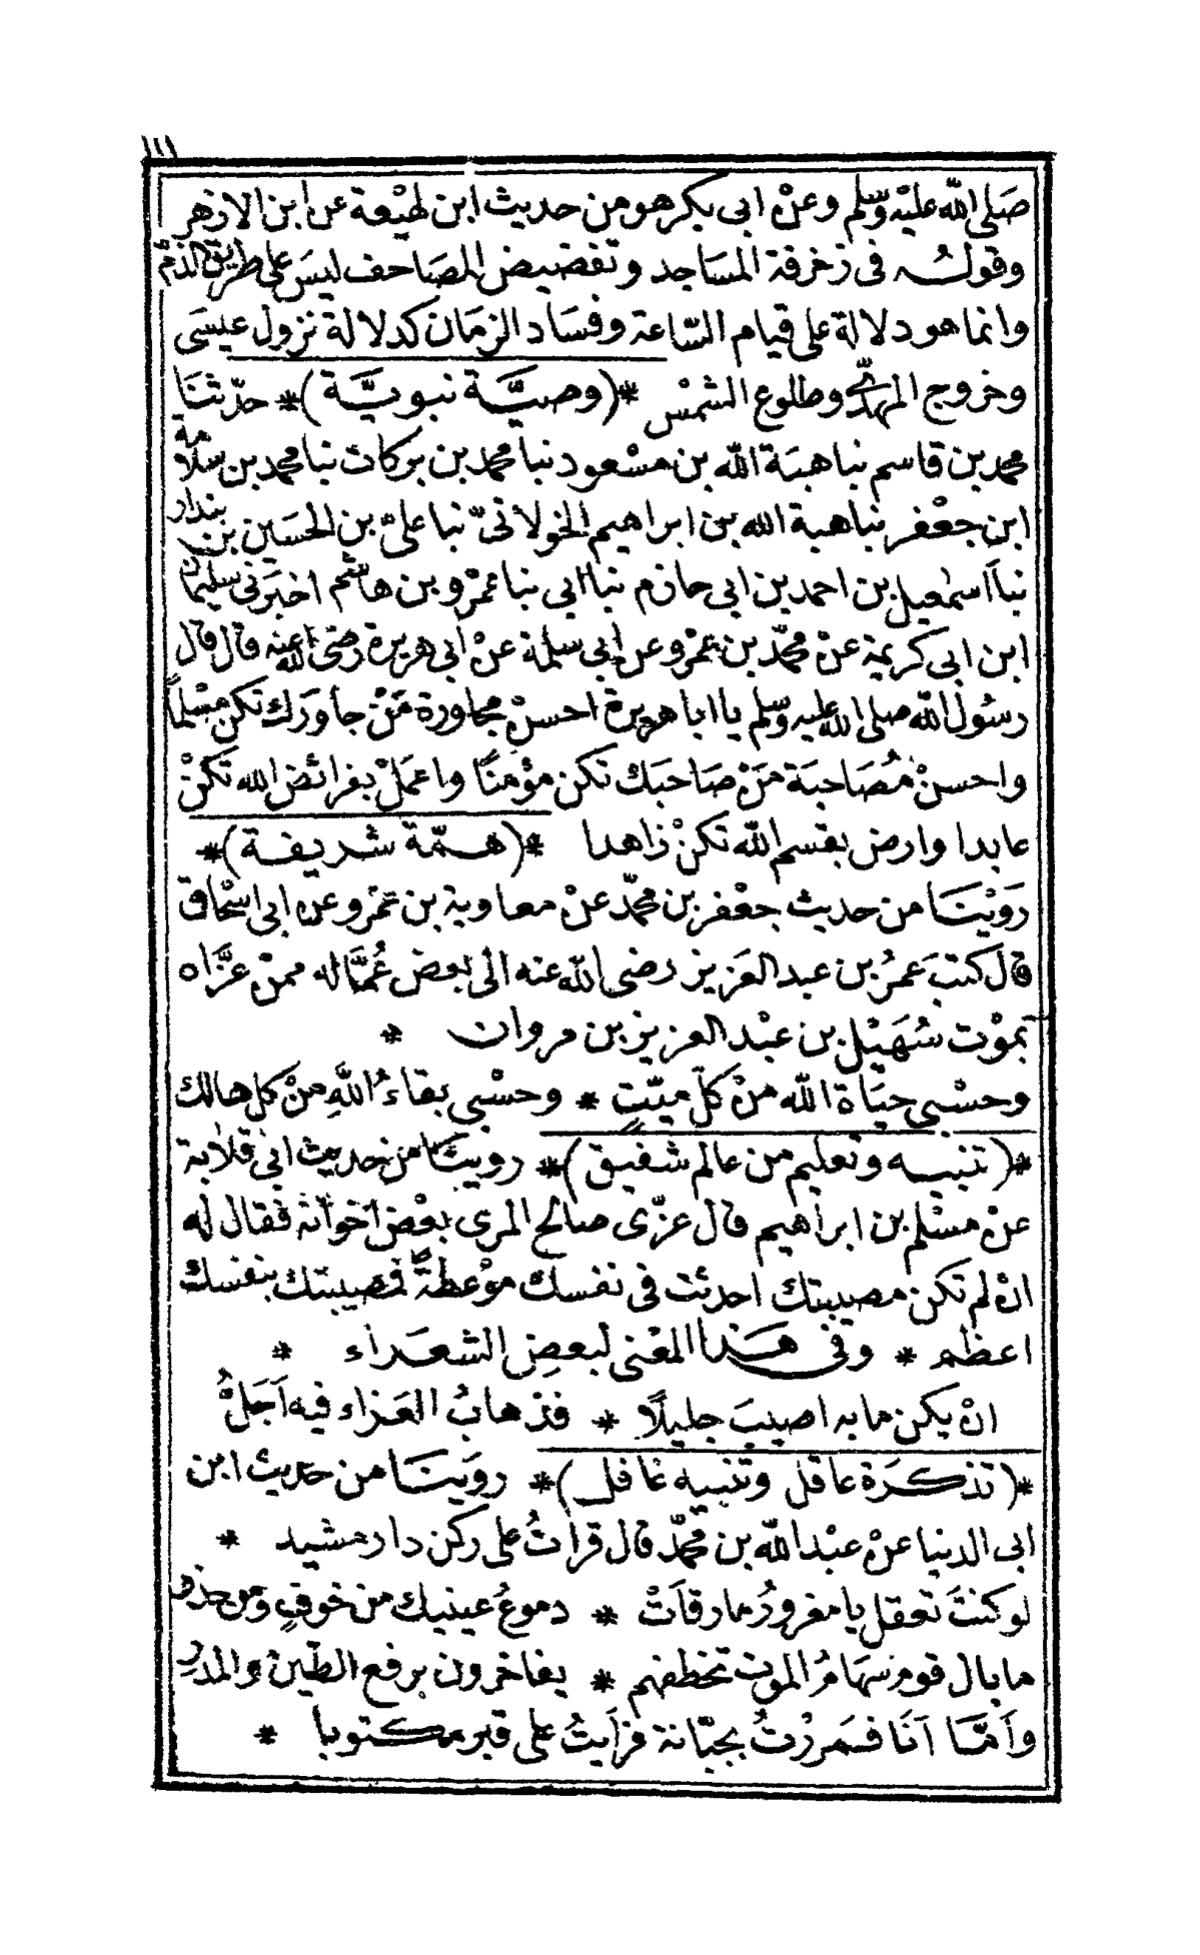 ١١١
صَلى الله عليْه وسَّلم وعنْ ابى بكر هو من حديث ابن لهيْعة عن ابن الازهر
وقولُـه فى زخرفة المسَاجد وتفضيض المصَاحف ليسَ على طريق الذمّ
وانما هو دلالة على قيام السَّاعة وفسَاد الزمَان كدلالة نزول عيسَى
وخروج المهدّى وطلوع الشمسْ *(وصيَّة نبويَّة)* حدّثنَا
محمد بن قاسم نبا هبَة الله بن مسْعود نبا محمد بن بركات نبا محمد بن سلامة
ابن جعْفر نبا هبة الله بن ابراهيم الخولانىّ نبا علىّ بن الحسَين بن بندار
نبأ اسمعيل بن احمد بن ابى حازم نبا ابى نبا عمْرو بن هاشم اخبَرنى سليمان
ابن ابى كريمة عنْ محمّد بن عمْرو عن ابى سلمة عنْ أبى هريرة رضى الله عنه قال قال
رسُول الله صلى الله عليه وسّلم يا ابا هريرة احسنْ مجاورة مَنْ جاورَك تكن مسْلماً
واحسنْ مُصَاحبَة مَنْ صَاحبَك تكن مؤمنًا واعمَلْ بفرائض الله تكنْ
عابدا وارض بقسم الله تكنْ زاهدا *(همّة شريفة)*
رَوَيْنَا من حديث جعْفر بن محمّد عنْ معاوية بن عمْرو عن ابى اسْحاق
قال كتبَ عمَرُ بن عبد العَزيز رضى الله عنه الى بعض عُمَّاله ممنْ عزَّاه
بموْت سُهَيْل بن عبْد العزيز بن مروان *
وحسْبى حيَاة الله منْ كلّ ميّتٍ * وحسْبى بقاءُ اللهِ منْ كل هالك
*(تنبيه وتعليم من عالم شفيق)* روينَا من حديث ابى قلابة
عنْ مسْلم بن ابراهيم قال عزّى صالح المرى بعْض اخوانه فقال له
انْ لم تكن مصيبتك احدثت فى نفسك موْعظةً فمصيبتك بنفسك
اعظم * وفى هَذا المعْنى لبعضِ الشعَراء *
انْ يكن ما به اصيبَ جليلًا * فذهابُ العَزاء فيه اَجَلُّ
*(تذكرَة عاقل وتنبيه غافل)* روَيْنَا من حديث ابن
ابى الدنيا عنْ عبْد الله بن محمّد قال قرأتُ على ركن دار مشيد *
لو كنتَ تعقل يا مغرورُ مارقأتْ * دموعُ عينيك من خوفٍ ومن حذر
ما بال قوم سهَامُ الموت تخطفهم * يفاخرون برفع الطّين والمدَر
واَمَّا اَنَا فمَررْتُ بجبّانة فراَيتُ على قبر مكتوبا *